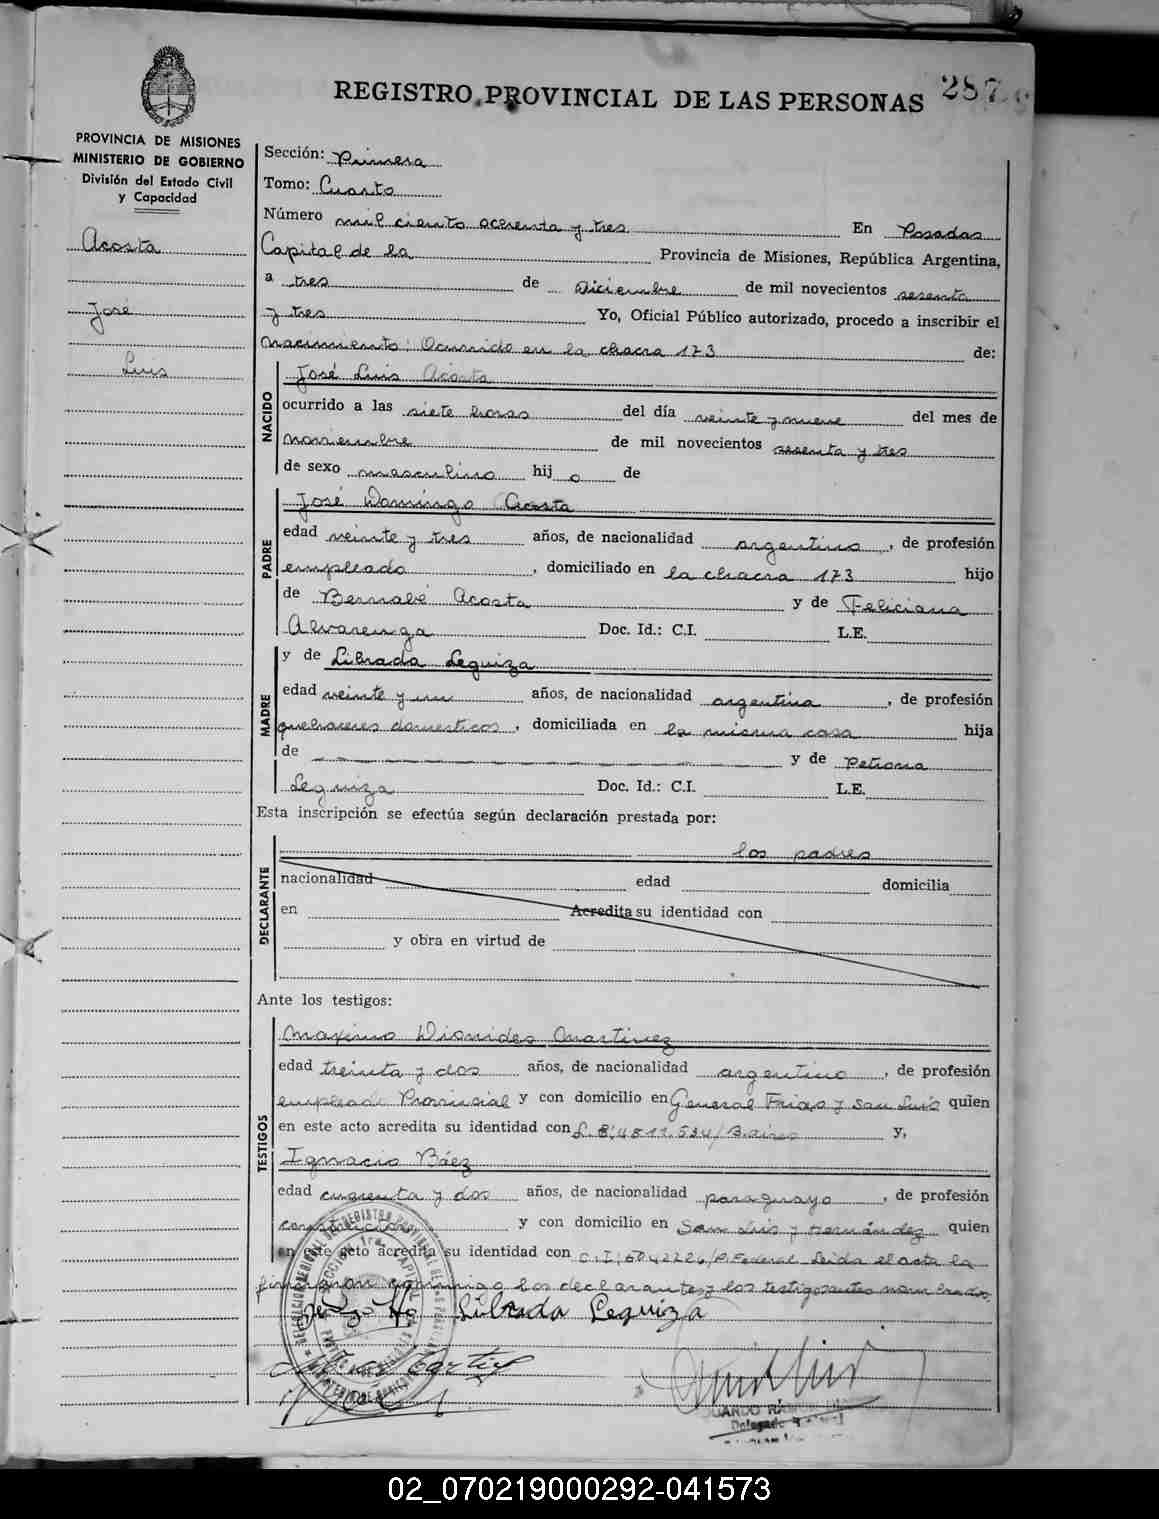 REGISTRO PROVINCIAL DE LAS PERSONAS
287
PROVINCIA DE MISIONES
MINISTERIO DE GOBIERNO
División del Estado Civil
y Capacidad
Acosta
José
Luis
Sección: Primera
Tomo: Cuarto
Número mil ciento ochenta y tres En Posadas
Capital de la Provincia de Misiones, República Argentina,
a tres de Diciembre de mil novecientos sesenta
y tres Yo, Oficial Público autorizado, procedo a inscribir el
Nacimiento: Ocurrido en la chacra 173 de:
NACIDO
José Luis Acosta
ocurrido a las siete horas del día veinte y nueve del mes de
Noviembre de mil novecientos sesenta y tres
de sexo masculino hij o de
PADRE
José Domingo Acosta
edad veinte y tres años, de nacionalidad argentino, de profesión
empleado, domiciliado en la chacra 173 hijo
de Bernabé Acosta y de Feliciana
Alvarenga Doc. Id.: C.I. L.E.
MADRE
y de Librada Leguiza
edad veinte y un años, de nacionalidad argentina, de profesión
quehaceres domesticos, domiciliada en la misma casa hija
de y de Petrona
Leguiza Doc. Id.: C.I. L.E.
Esta inscripción se efectúa según declaración prestada por:
DECLARANTE
los padres
nacionalidad edad domicilia
en Acredita su identidad con
y obra en virtud de
Ante los testigos:
TESTIGOS
Maximo Dionides Martinez
edad treinta y dos años, de nacionalidad argentino, de profesión
empleado Provincial y con domicilio en General Frias y San Luis quien
en este acto acredita su identidad con y,
Ignacio Báez
edad cuarenta y dos años, de nacionalidad paraguayo, de profesión
y con domicilio en San Luis y Hernández quien
en este acto acredita su identidad con C.I; P. Federal Leida el acta la
firmaron conmigo los declarantes y los testigos antes nombrados
Librada Leguiza
02_070219000292-041573